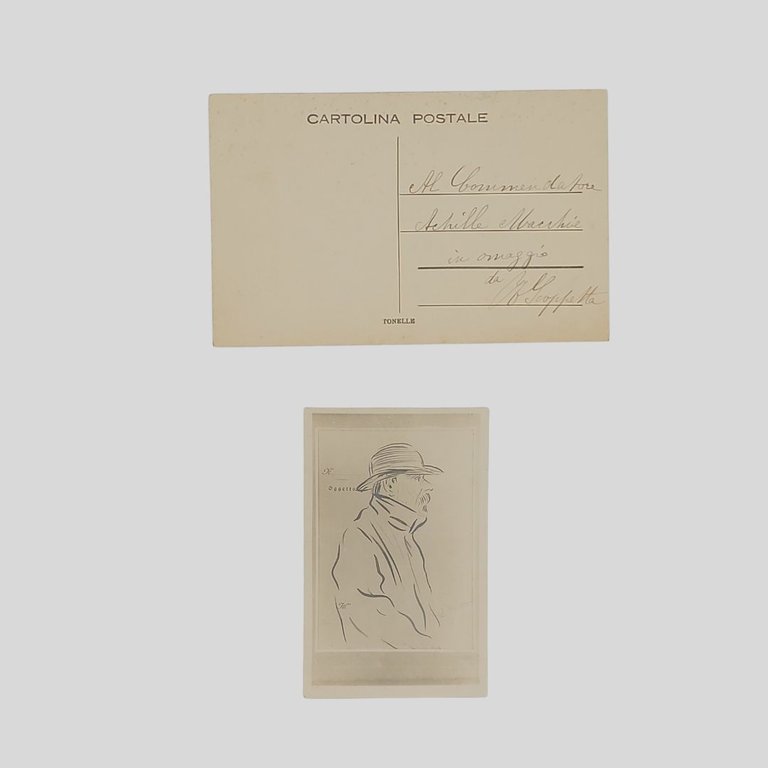 CARTOLINA POSTALE
Al Commendatore
Achille Macchie
in omaggio
da Scoppetta
TONELLE
N.
Oggetto